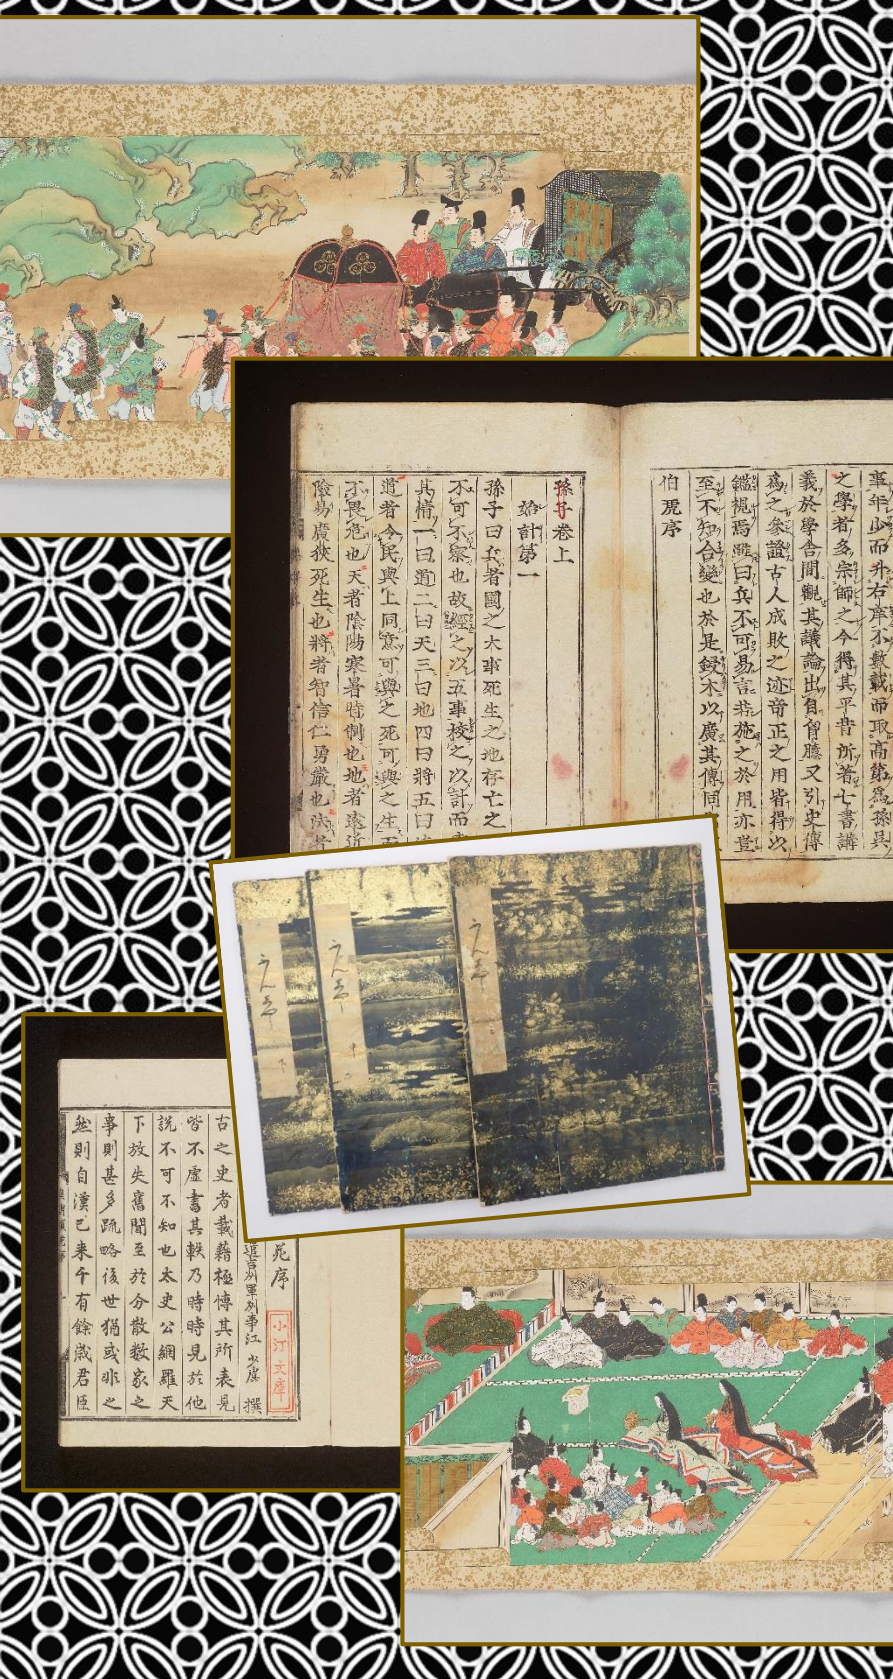 事年少而升右庠不數載而取高第為孫吳
之學者多宗師之今得其平昔所著七書講
義於學舍間觀其議論出自胷臆又引史傳
為之參證古人成敗之迹奇正之用皆得以
鑑視焉雖曰兵不可易言若施之於用亦豈
至不知合變也於是鋟木以廣其傳同
伯虎序
孫子卷上
始計第一
孫子曰兵者國之大事死生之地存亡之
不可不察也故經之以五事校之以計而
其情一曰道二曰天三曰地四曰將五曰
道者令民與上同意可與之死可與之生
不畏危也天者陰陽寒暑時制也地者遠近
險易廣狹死生也將者智信仁勇嚴也法
苑序
小汀文庫
江少虞撰
古之史者載籍極博其所表見
皆不虛書其軼乃時時見於他
說不可不知也太史公網羅天
下放失舊聞至於分散數家之
事則甚多疏略後世猶或非之
然則自漢已来千有餘歲君臣